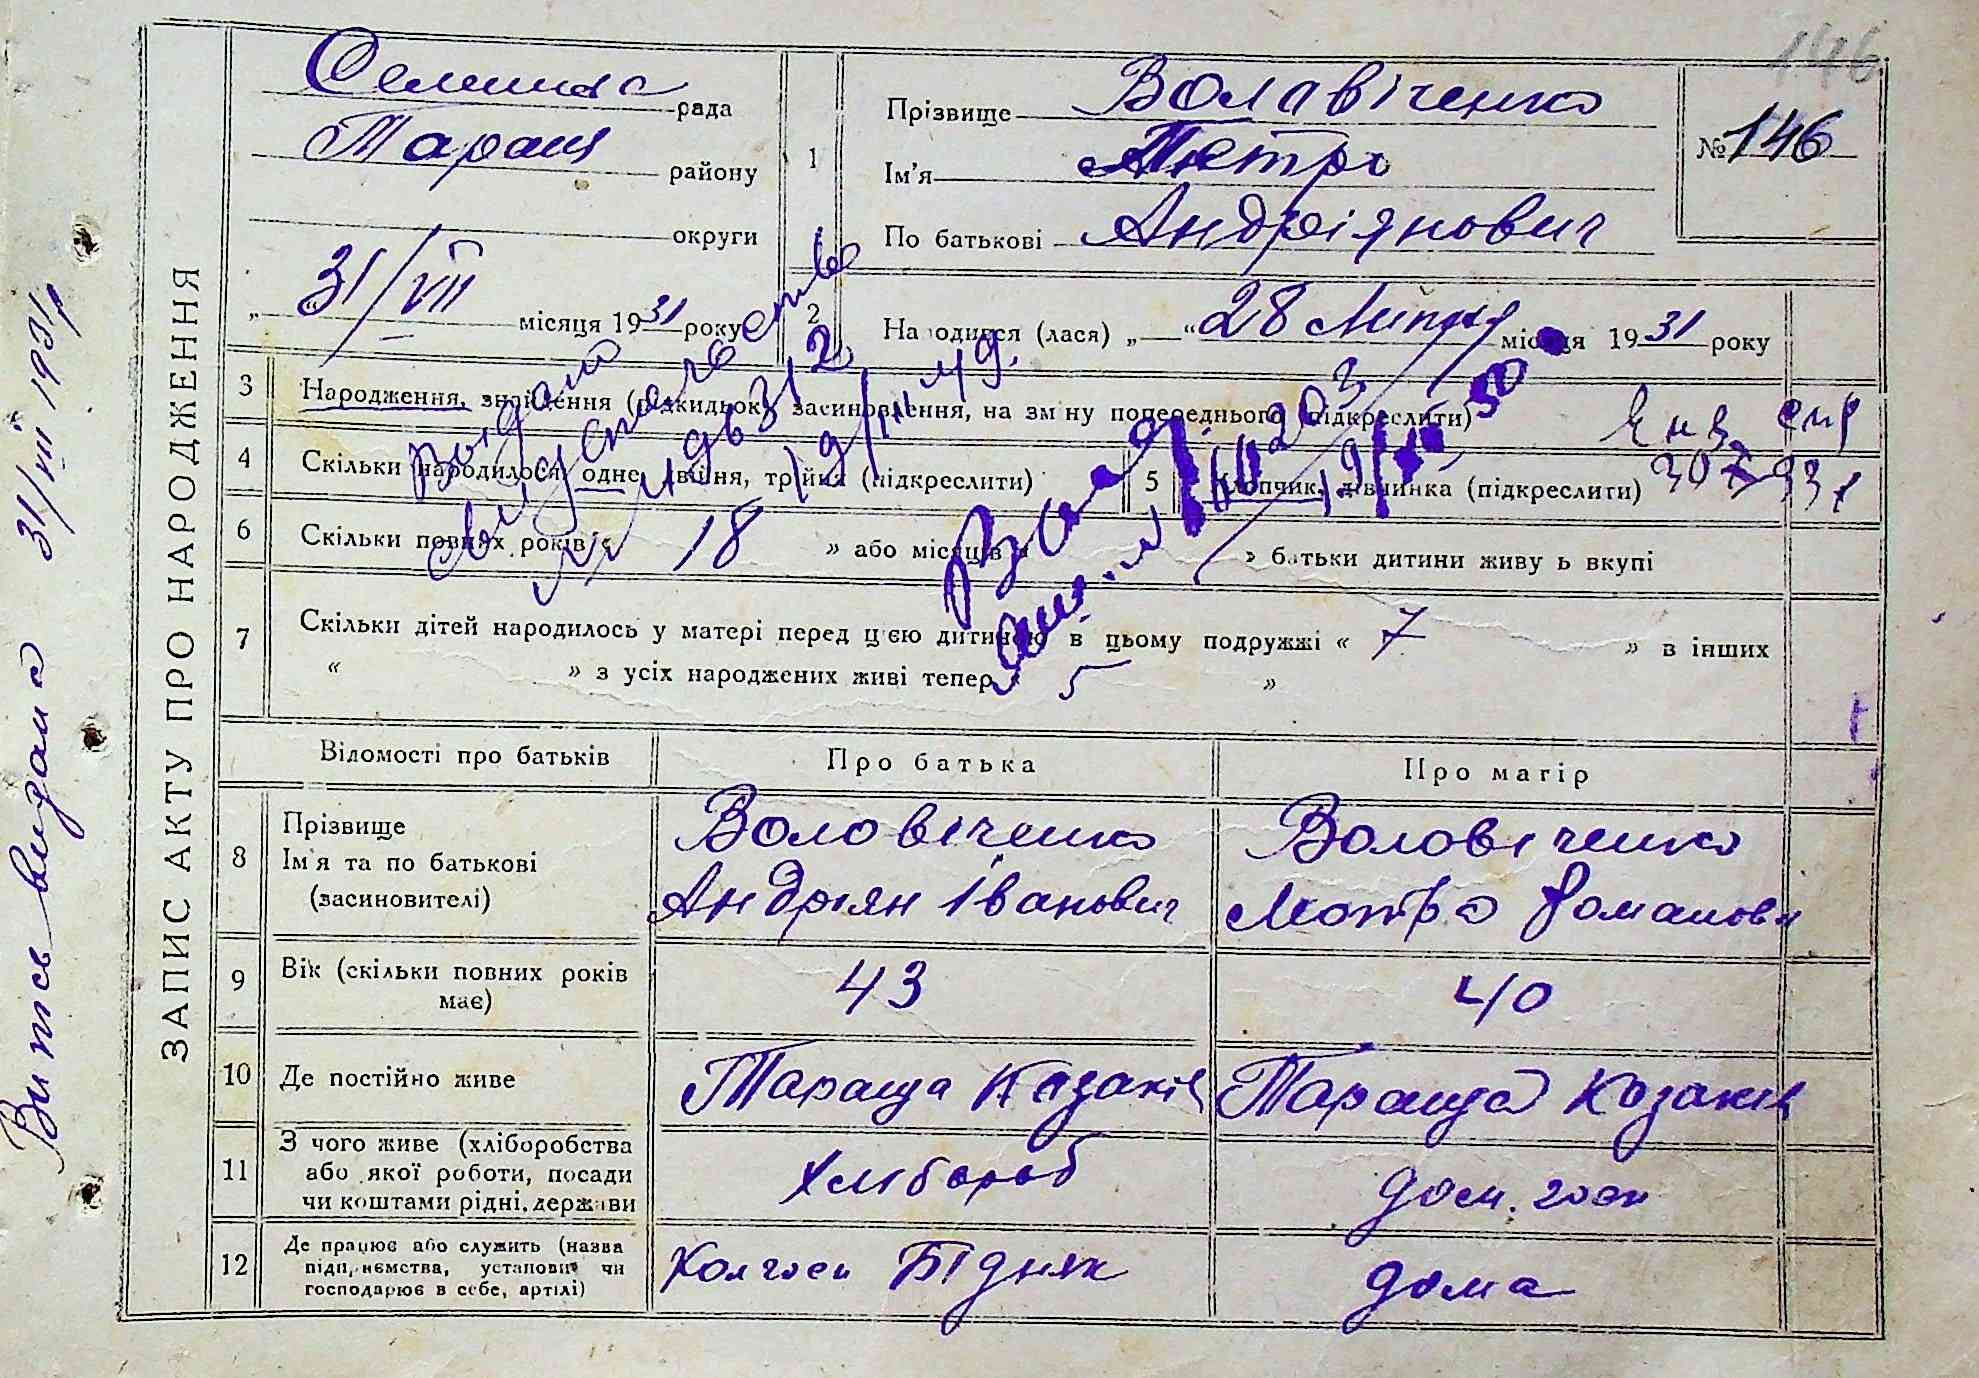 146
Селищна рада
Тараща району
округи
„31/VIII місяця 1931 року
ЗАПИС АКТУ ПРО НАРОДЖЕННЯ
1
Прізвище Волавіченко
Ім'я Петро
По батькові Андріянович
№ 146
2
Народився (лася) „ — “ 28 Липня місяця 1931 року
3 Народження, знайдення (підкидьок) засиновлення, на зміну попереднього (підкреслити)
4 Скільки народилося одне, двійня, трійня (підкреслити)
5 Хлопчик, дівчинка (підкреслити)
6 Скільки повних років « 18 » або місяців « » батьки дитини живуть вкупі
7 Скільки дітей народилось у матері перед цією дитиною в цьому подружжі « 7 » в інших
“ » з усіх народжених живі тепер « 5 »
Видано
свідоцтво
Витяг видано 31/VIII 1931р
Відомості про батьків
Про батька
Про матір
8 Прізвище
Ім'я та по батькові
(засиновителі)
Воловіченко
Андріян Іванович
Воловіченко
Мотря Романовн
9 Вік (скільки повних років
має)
43
40
10 Де постійно живе
Тараща Козаків
Тараща Козаків
11 З чого живе (хліборобства
або якої роботи, посади
чи коштами рідні, держави
Хлібороб
дом. госп
12 Де працює або служить (назва
підприємства, установи чи
господарює в себе, артілі)
Колгосп Бідняк
дома